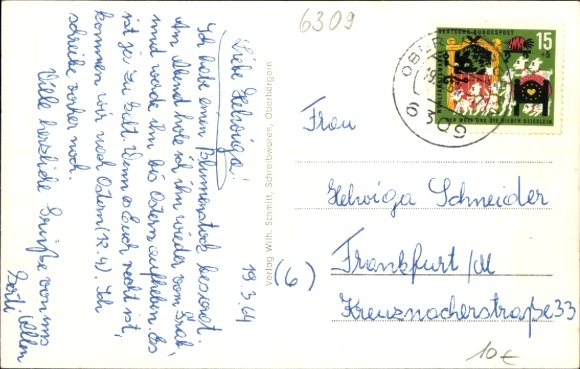 6309
19.3.64
Liebe Helwiga!
Ich habe einen Blumenstock besorgt.
Am Abend hole ich ihn wieder vom Grab,
und werde ihn bis Ostern aufheben. Es
ist ja zu kalt. Wenn es Euch recht ist,
kommen wir nach Ostern (12.4). Ich
schreibe vorher noch.
Viele herzliche Grüße von uns
allen
Verlag Wilh. Schmitt, Schreibwaren, Oberhörgern
DEUTSCHE BUNDESPOST
15
+5
WOHLFAHRTSMARKE
DER WOLF UND DIE SIEBEN GEISSLEIN
6309
Frau
Helwiga Schneider
(6) Frankfurt/M
Kreuznacherstraße 33
10€